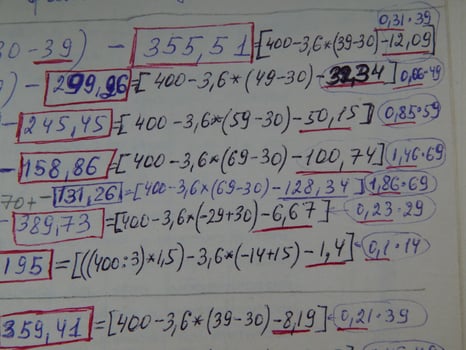 0,31·39
30-39) - 355,51=[400-3,6*(39-30)-12,09]
) - 299,96=[400-3,6*(49-30)-32,34] 0,66·49
- 245,45=[400-3,6*(59-30)-50,15] 0,85·59
- 158,86=[400-3,6*(69-30)-100,74] 1,46·69
70+ - 131,26=[400-3,6*(69-30)-128,34] 1,86·69
- 389,73=[400-3,6*(-29+30)-6,67] 0,23·29
195=[((400:3)*1,5)-3,6*(-14+15)-1,4] 0,1·14
359,41=[400-3,6*(39-30)-8,19] 0,21·39